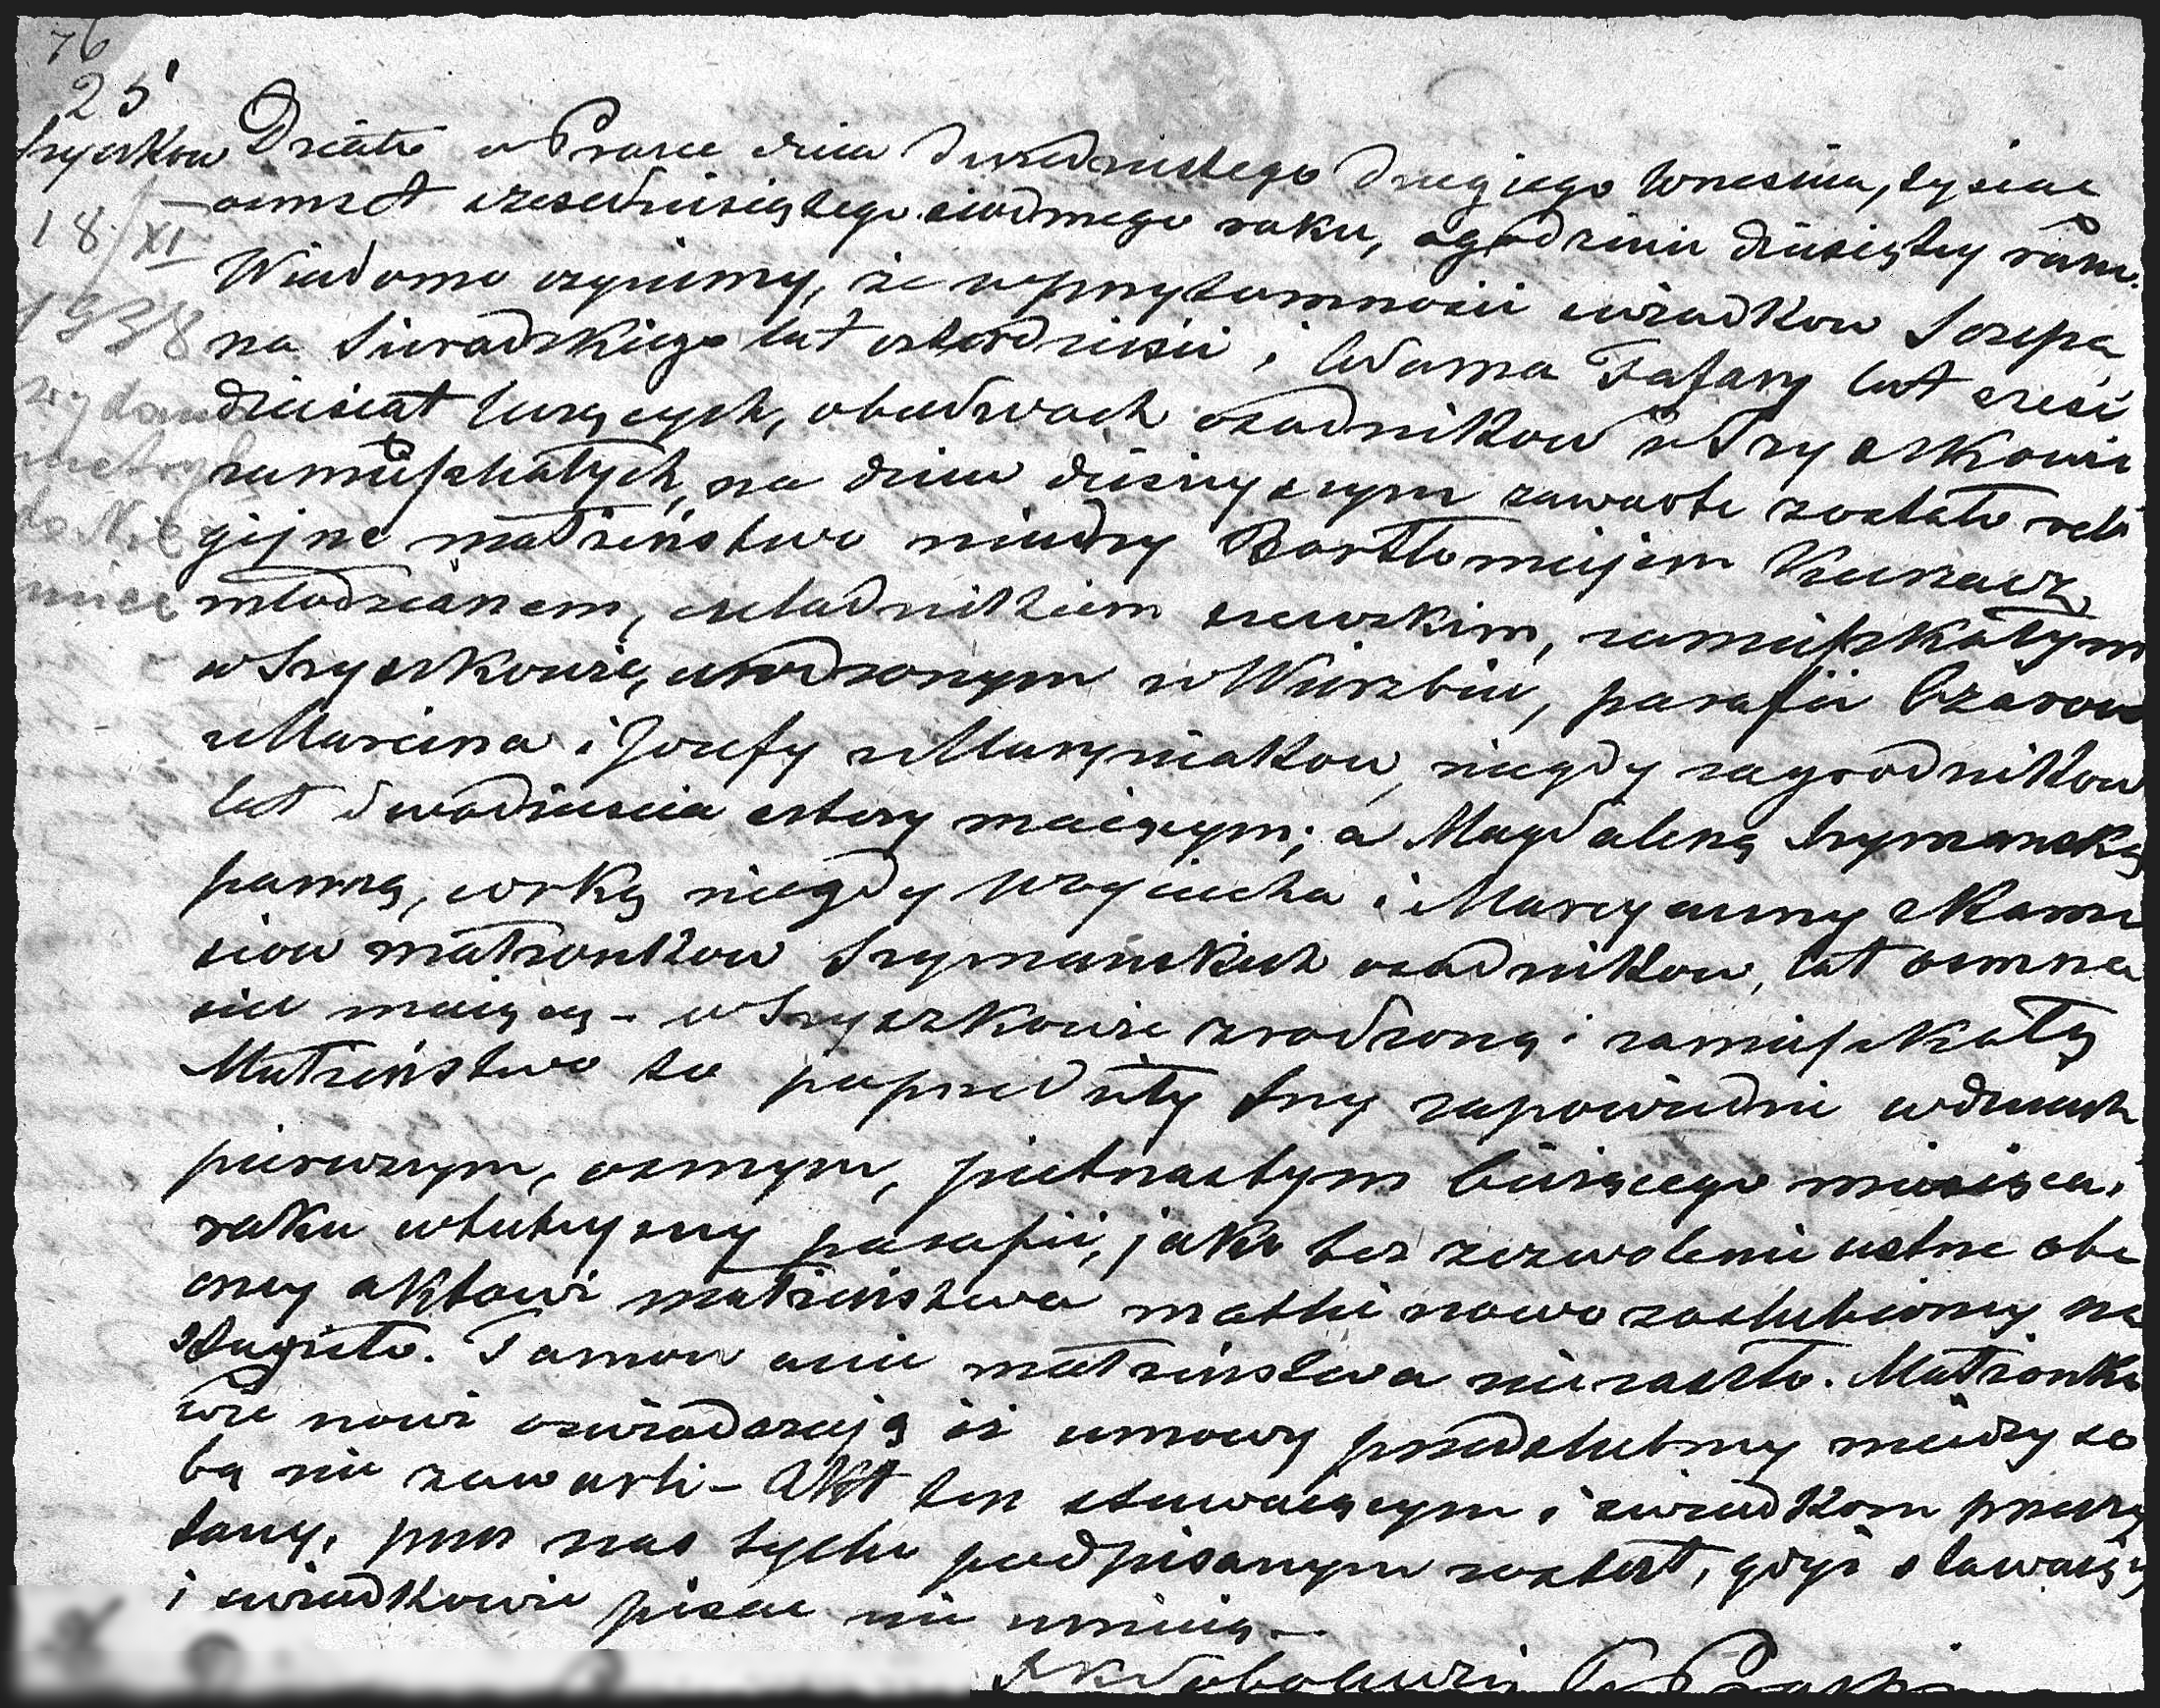 76
25
Szyszkow Działo w Prasce dnia dwudziestego drugiego Wrzesnia, tysiac
osmset szescdziesiątego siodmego roku, o godzinie dziesiątey rano.
Wiadomo czyniemy, że w przytomności swiadkow Szczepa
na Sieradzkiego lat czterdziesci i Adama Fafary lat szesć
dziesiat liczących, obudwoch osadnikow w Szyszkowie
zamieszkałych, na dniu dzisieyszym zawarte zostało reli
gijne małżeństwo miedzy Bartłomiejem
młodzianem, czeladnikiem szewskim, zamieszkałym
w Szyszkowie, urodzonym w Wierzbiu, parafii
z Marcina i Jozefy z Maryniakow, niegdy zagrodnikow
lat dwadziescia cztery maiącym; a Magdaleną Szymanską
panną, corką niegdy Woyciecha i Maryanny z Kamu
siow małżonkow Szymańskich osadnikow, lat osmna
scie maiącą - w Szyszkowie zrodzoną i zamieszkałą
Małżeństwo to poprzedziły trzy zapowiedzie w dniach
pierwszym, osmym, pietnastym bieżącego miesiąca,
roku w tuteyszey parafii, jako tez zezwolenie ustne obe
cney aktowi małżeństwa matki nowo zaslubioney na
stąpiło. Tamowanie małżenstwa nie zaszło. Małżonko
wie nowi oswiadczają iż umowy przedslubney miedzy so
bą nie zawarli - Akt ten stawaiącym i swiadkom przeczy
tany, przez nas tylko podpisanym został, gdyż stawaiący
i swiadkowie pisac nie umieią -
18/XI
1938
wydano
metrykę
do Nie
miec